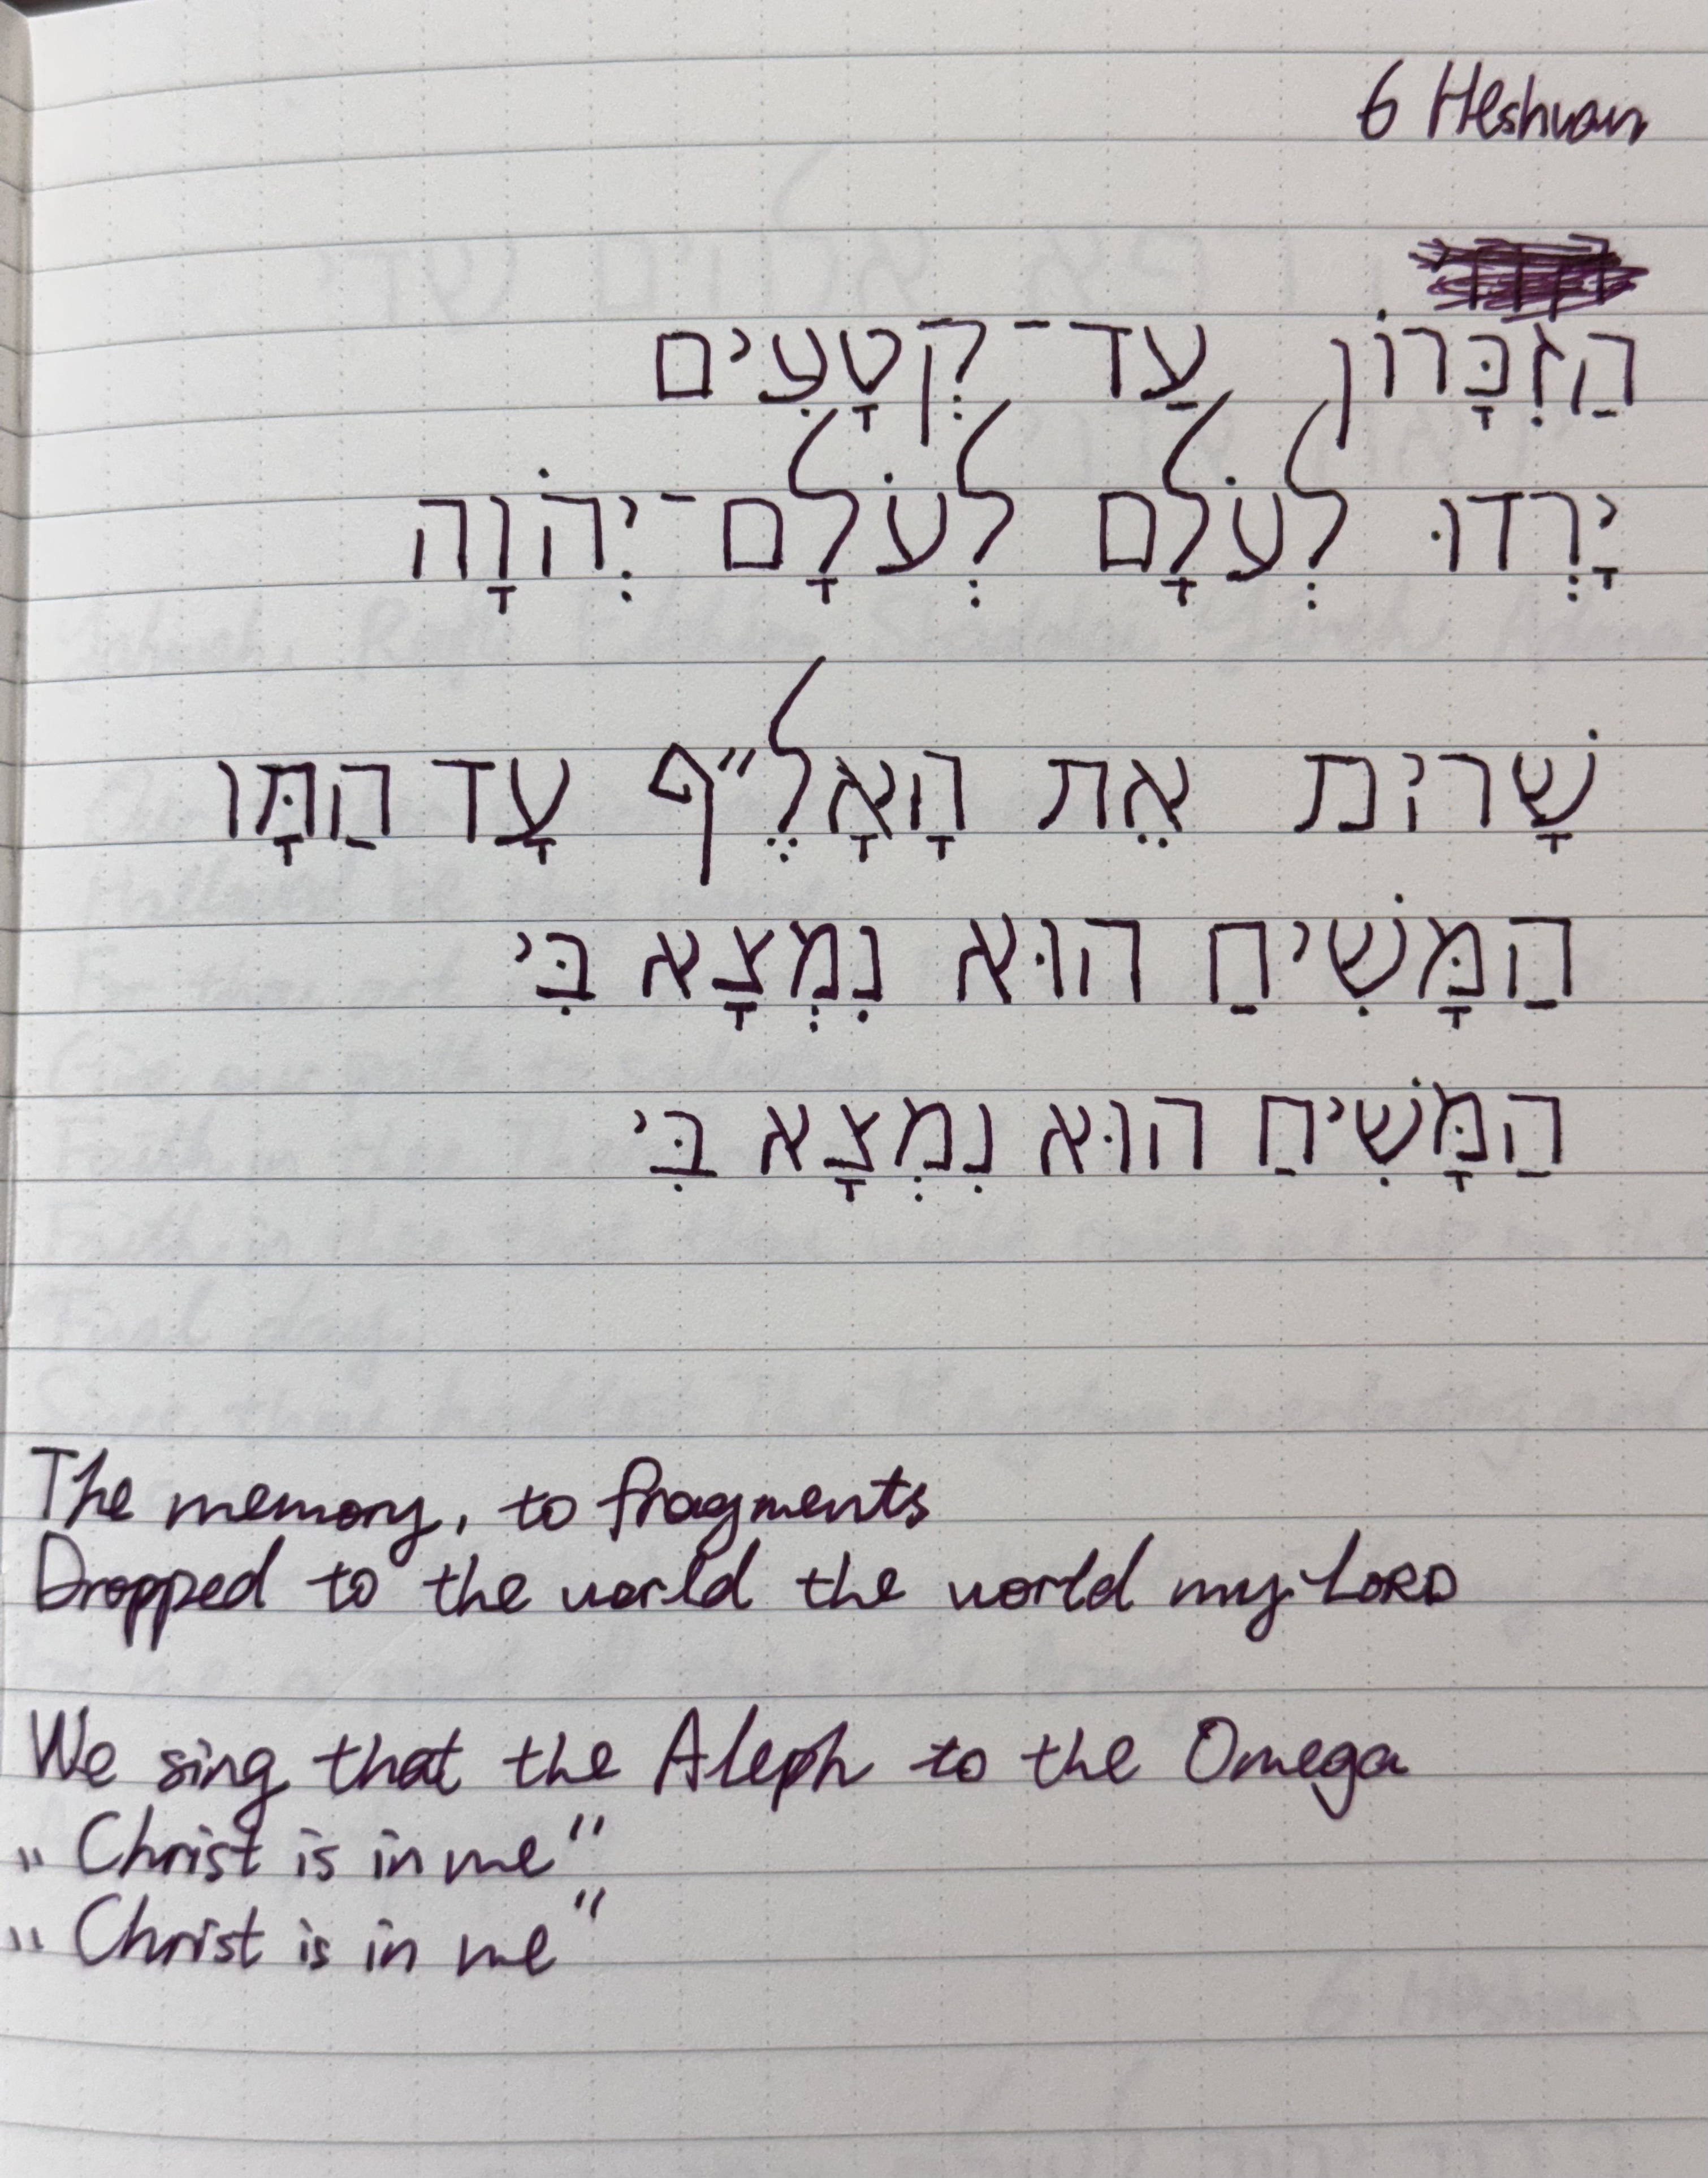 6 Heshvan
הַזִּכָּרוֹן עַד־קְטָעִים
יָרְדוּ לְעֹלָם לְעֹלָם־יְהֹוָה
אֵת הָאָלֶ״ף עָד הַתָּו
הַמָּשִׁיחַ הוּא נִמְצָא בִּי
הַמָּשִׁיחַ הוּא נִמְצָא בִּי
The memory, to fragments
Dropped to the world the world my LORD
We sing that the Aleph to the Omega
„Christ is in me"
„Christ is in me"